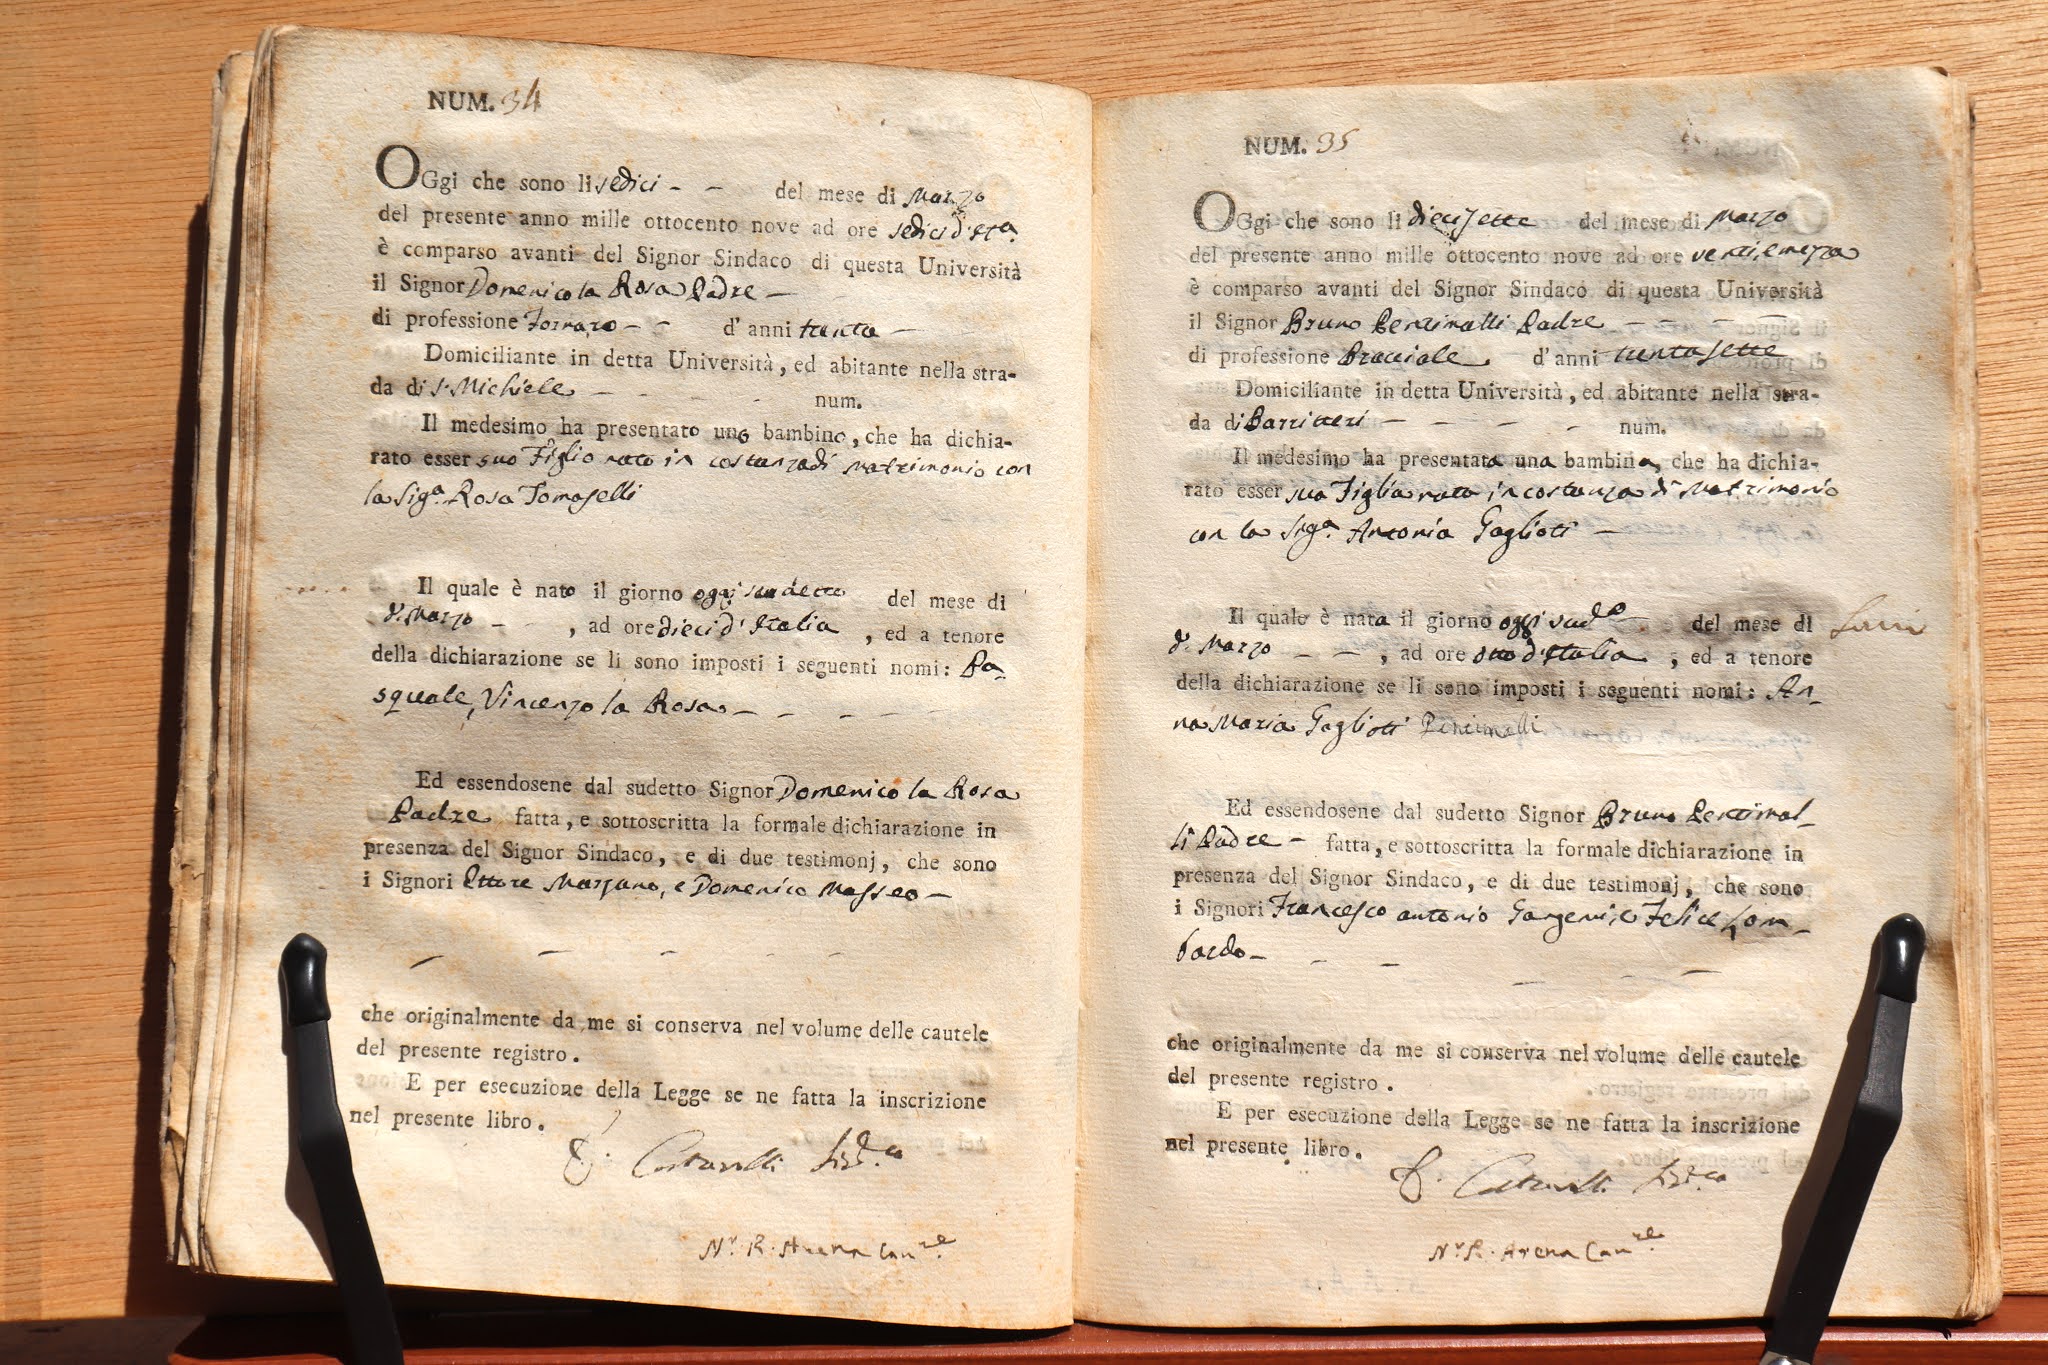 NUM. 34
OGgi che sono li sedici - - del mese di Marzo
del presente anno mille ottocento nove ad ore sedici d'Ita.
è comparso avanti del Signor Sindaco di questa Università
il Signor Domenico la Rosa Padre -
di professione Fornaro - - d' anni trenta -
Domiciliante in detta Università, ed abitante nella stra-
da di S. Michiele - - - - num.
Il medesimo ha presentato uno bambino, che ha dichia-
rato esser suo Figlio nato in costanza di Matrimonio con
la Sig.a Rosa Tomaselli
Il quale è nato il giorno oggi sudetto del mese di
di Marzo - - , ad ore dieci d'Italia , ed a tenore
della dichiarazione se li sono imposti i seguenti nomi: Pa-
squale, Vincenzo la Rosa - - - - -
Ed essendosene dal sudetto Signor Domenico la Rosa
Padre fatta, e sottoscritta la formale dichiarazione in
presenza del Signor Sindaco, e di due testimonj, che sono
i Signori Ettore Marzano, e Domenico Masseo -
che originalmente da me si conserva nel volume delle cautele
del presente registro.
E per esecuzione della Legge se ne fatta la inscrizione
nel presente libro.
Sind.co
N.r R. Arena Can.re
NUM. 35
OGgi che sono li diecisette del mese di Marzo
del presente anno mille ottocento nove ad ore venti, e mezza
è comparso avanti del Signor Sindaco di questa Università
il Signor Bruno Pentimalli Padre - - - -
di professione Bracciale d' anni trentasette
Domiciliante in detta Università, ed abitante nella stra-
da di Barritteri - - - - num.
Il medesimo ha presentata una bambina, che ha dichia-
rato esser sua Figlia nata in costanza di Matrimonio
con la Sig.a Antonia Gaglioti -
Il quale è nata il giorno oggi sud.o - del mese di
di Marzo - - , ad ore otto d'Italia , ed a tenore
della dichiarazione se li sono imposti i seguenti nomi: An-
na Maria Gaglioti Pentimalli
Ed essendosene dal sudetto Signor Bruno Pentimal-
li Padre - fatta, e sottoscritta la formale dichiarazione in
presenza del Signor Sindaco, e di due testimonj, che sono
i Signori Francesco Antonio Gangemi, e Felice Lom-
bardo -
che originalmente da me si conserva nel volume delle cautele
del presente registro.
E per esecuzione della Legge se ne fatta la inscrizione
nel presente libro.
Sind.co
N.r R. Arena Can.re